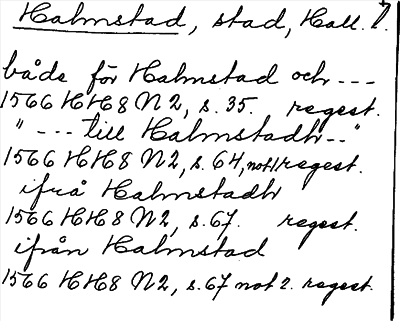 Halmstad, stad, Hall. l.
både för Halmstad och ---
1566 HH8 N2, s. 35. regest.
" --- till Halmstadh --"
1566 HH8 N2, s. 64, not 1 regest.
ifrå Halmstadh
1566 HH8 N2, s. 67. regest.
ifrån Halmstad
1566 HH8 N2, s. 67 not 2. regest.